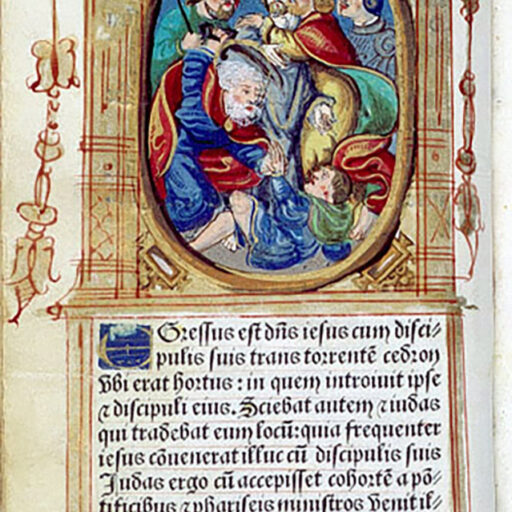 EGressus est dñs iesus cum disci-
pulis suis trans torrentē cedron
vbi erat hortus: in quem introiuit ipse
⁊ discipuli eius. Sciebat autem ⁊ iudas
qui tradebat eum locū: quia frequenter
iesus cōuenerat illuc cū discipulis suis
Judas ergo cū accepisset cohortē a pō-
tificibus ⁊ phariseis ministros venit il-